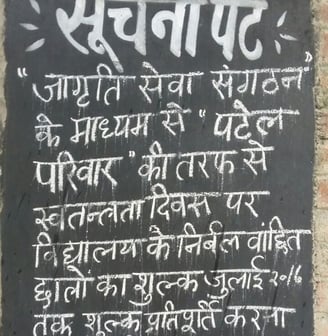 सूचना पट
"जागृति सेवा संगठन"
के माध्यम से "पटेल
परिवार" की तरफ से
स्वतन्त्रता दिवस पर
विद्यालय के निर्बल वाद्दित
छात्रों का शुल्क जुलाई २०१७
तक शुल्क प्रतिशर्त करना